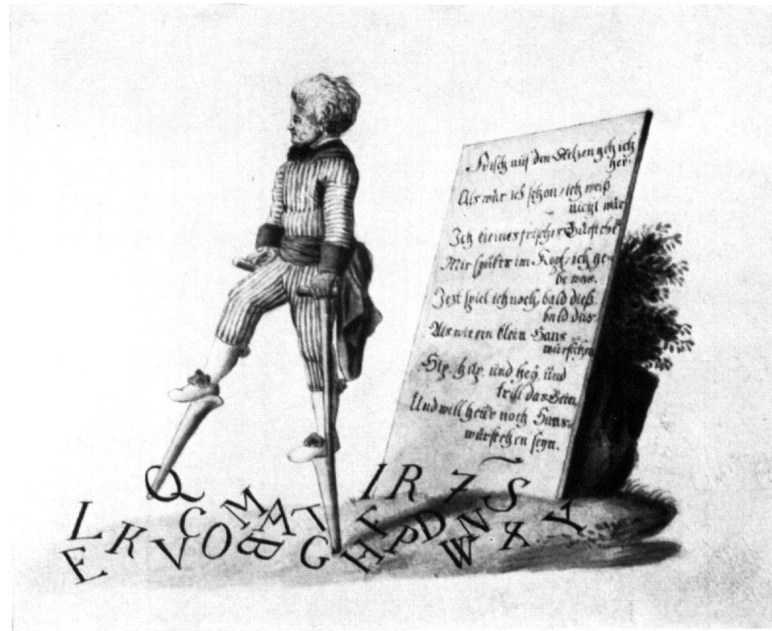 Frisch auf den Stelzen geh ich
her.
Als wär ich schon, ich weiß
nicht wär
Ich kleines frisches
Mir spukts im Kopf, ich ge-
be was.
Jezt spiel ich noch bald dieß
bald das.
Als wie ein klein Hans
würstchen
und hey und
trill das Bein
Und will heut noch Hans-
würstchen seyn.
Q
I R Z S
L K C M A T F P D N X Y
E V O B G H W